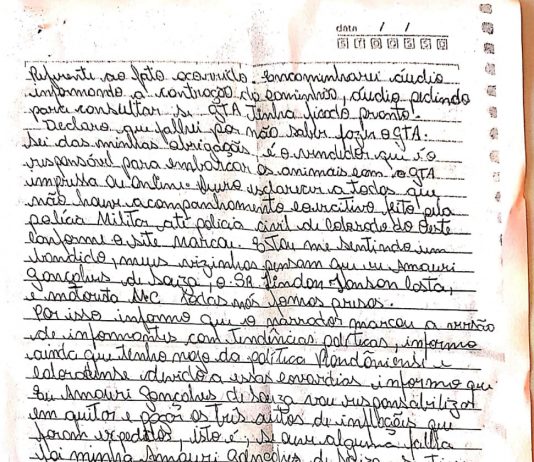 data / /
S T Q Q S S D
Referente ao fato ocorrido. Encaminharei áudio
informando a contração do caminhão, áudio pedindo
para consultar se GTA tinha ficado pronto.
Declaro que falhei por não saber fazer o GTA.
Sei das minhas obrigações, é o vendedor que é o
responsável para embarcar os animais com o GTA
impressa ou online. Quero esclarecer a todos que
não houve acompanhamento coercitivo feito pela
polícia Militar até policia civil de colorado do Oeste
conforme o site marcou. Estou me sentindo um
bandido, meus vizinhos pensam que eu Amauri
Gonçalves de Souza, o SR. Lindon Jonson Costa,
e motorista todos nós fomos presos.
Por isso informo que o narrador marcou a versão
de informantes com tendências políticas, informo
ainda que tenho nojo da política Rondôniense e
coloradense devido a essas covardias, informo que
Eu Amauri Gonçalves de Souza vou responsabilizar
em quitar e pagar os três autos de infleções que
foram expedidos, isto é, se ouve alguma falha
foi minha Amauri Gonçalves de Souza